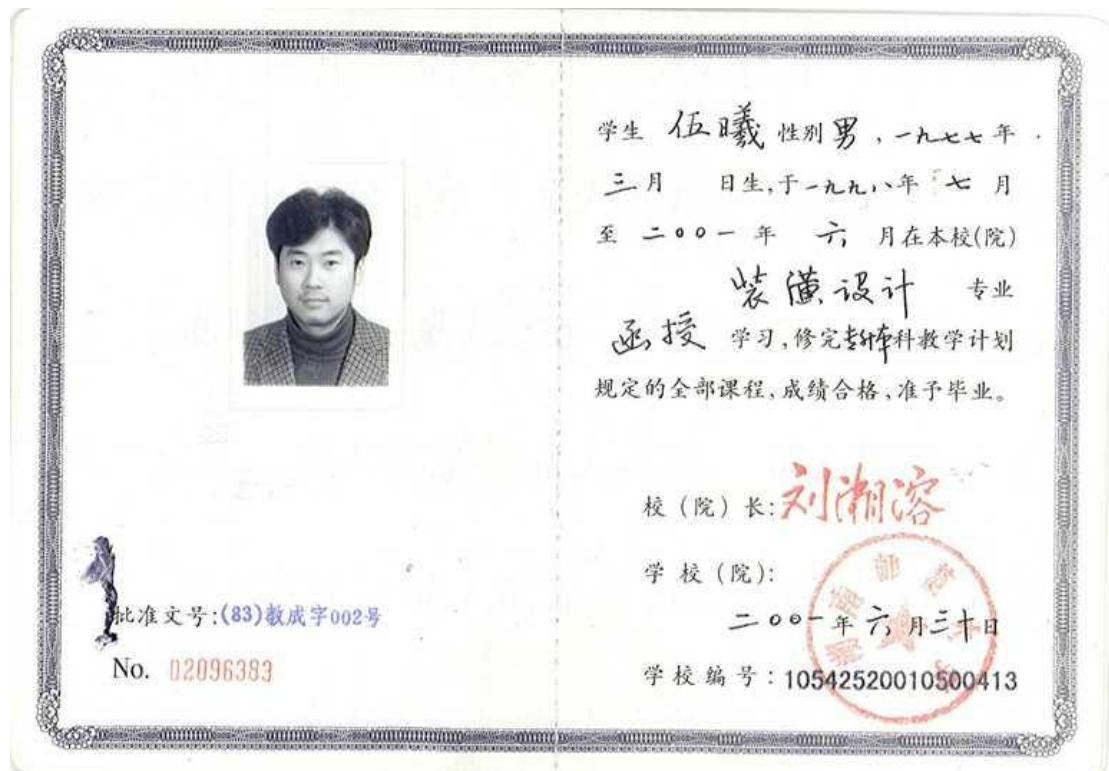 批准文号:(83)教成字002号
No. 02096383
学生 伍曦 性别 男 , 一九七七 年
三 月 日生,于 一九九八 年 七 月
至 二〇〇一 年 六 月在本校(院)
装潢设计 专业
函授 学习,修完专升本科教学计划
规定的全部课程,成绩合格,准予毕业。
校(院)长: 刘湘溶
学校(院):
湖南师范大学
二〇〇一 年 六 月 三十 日
学校编号:10542520010500413